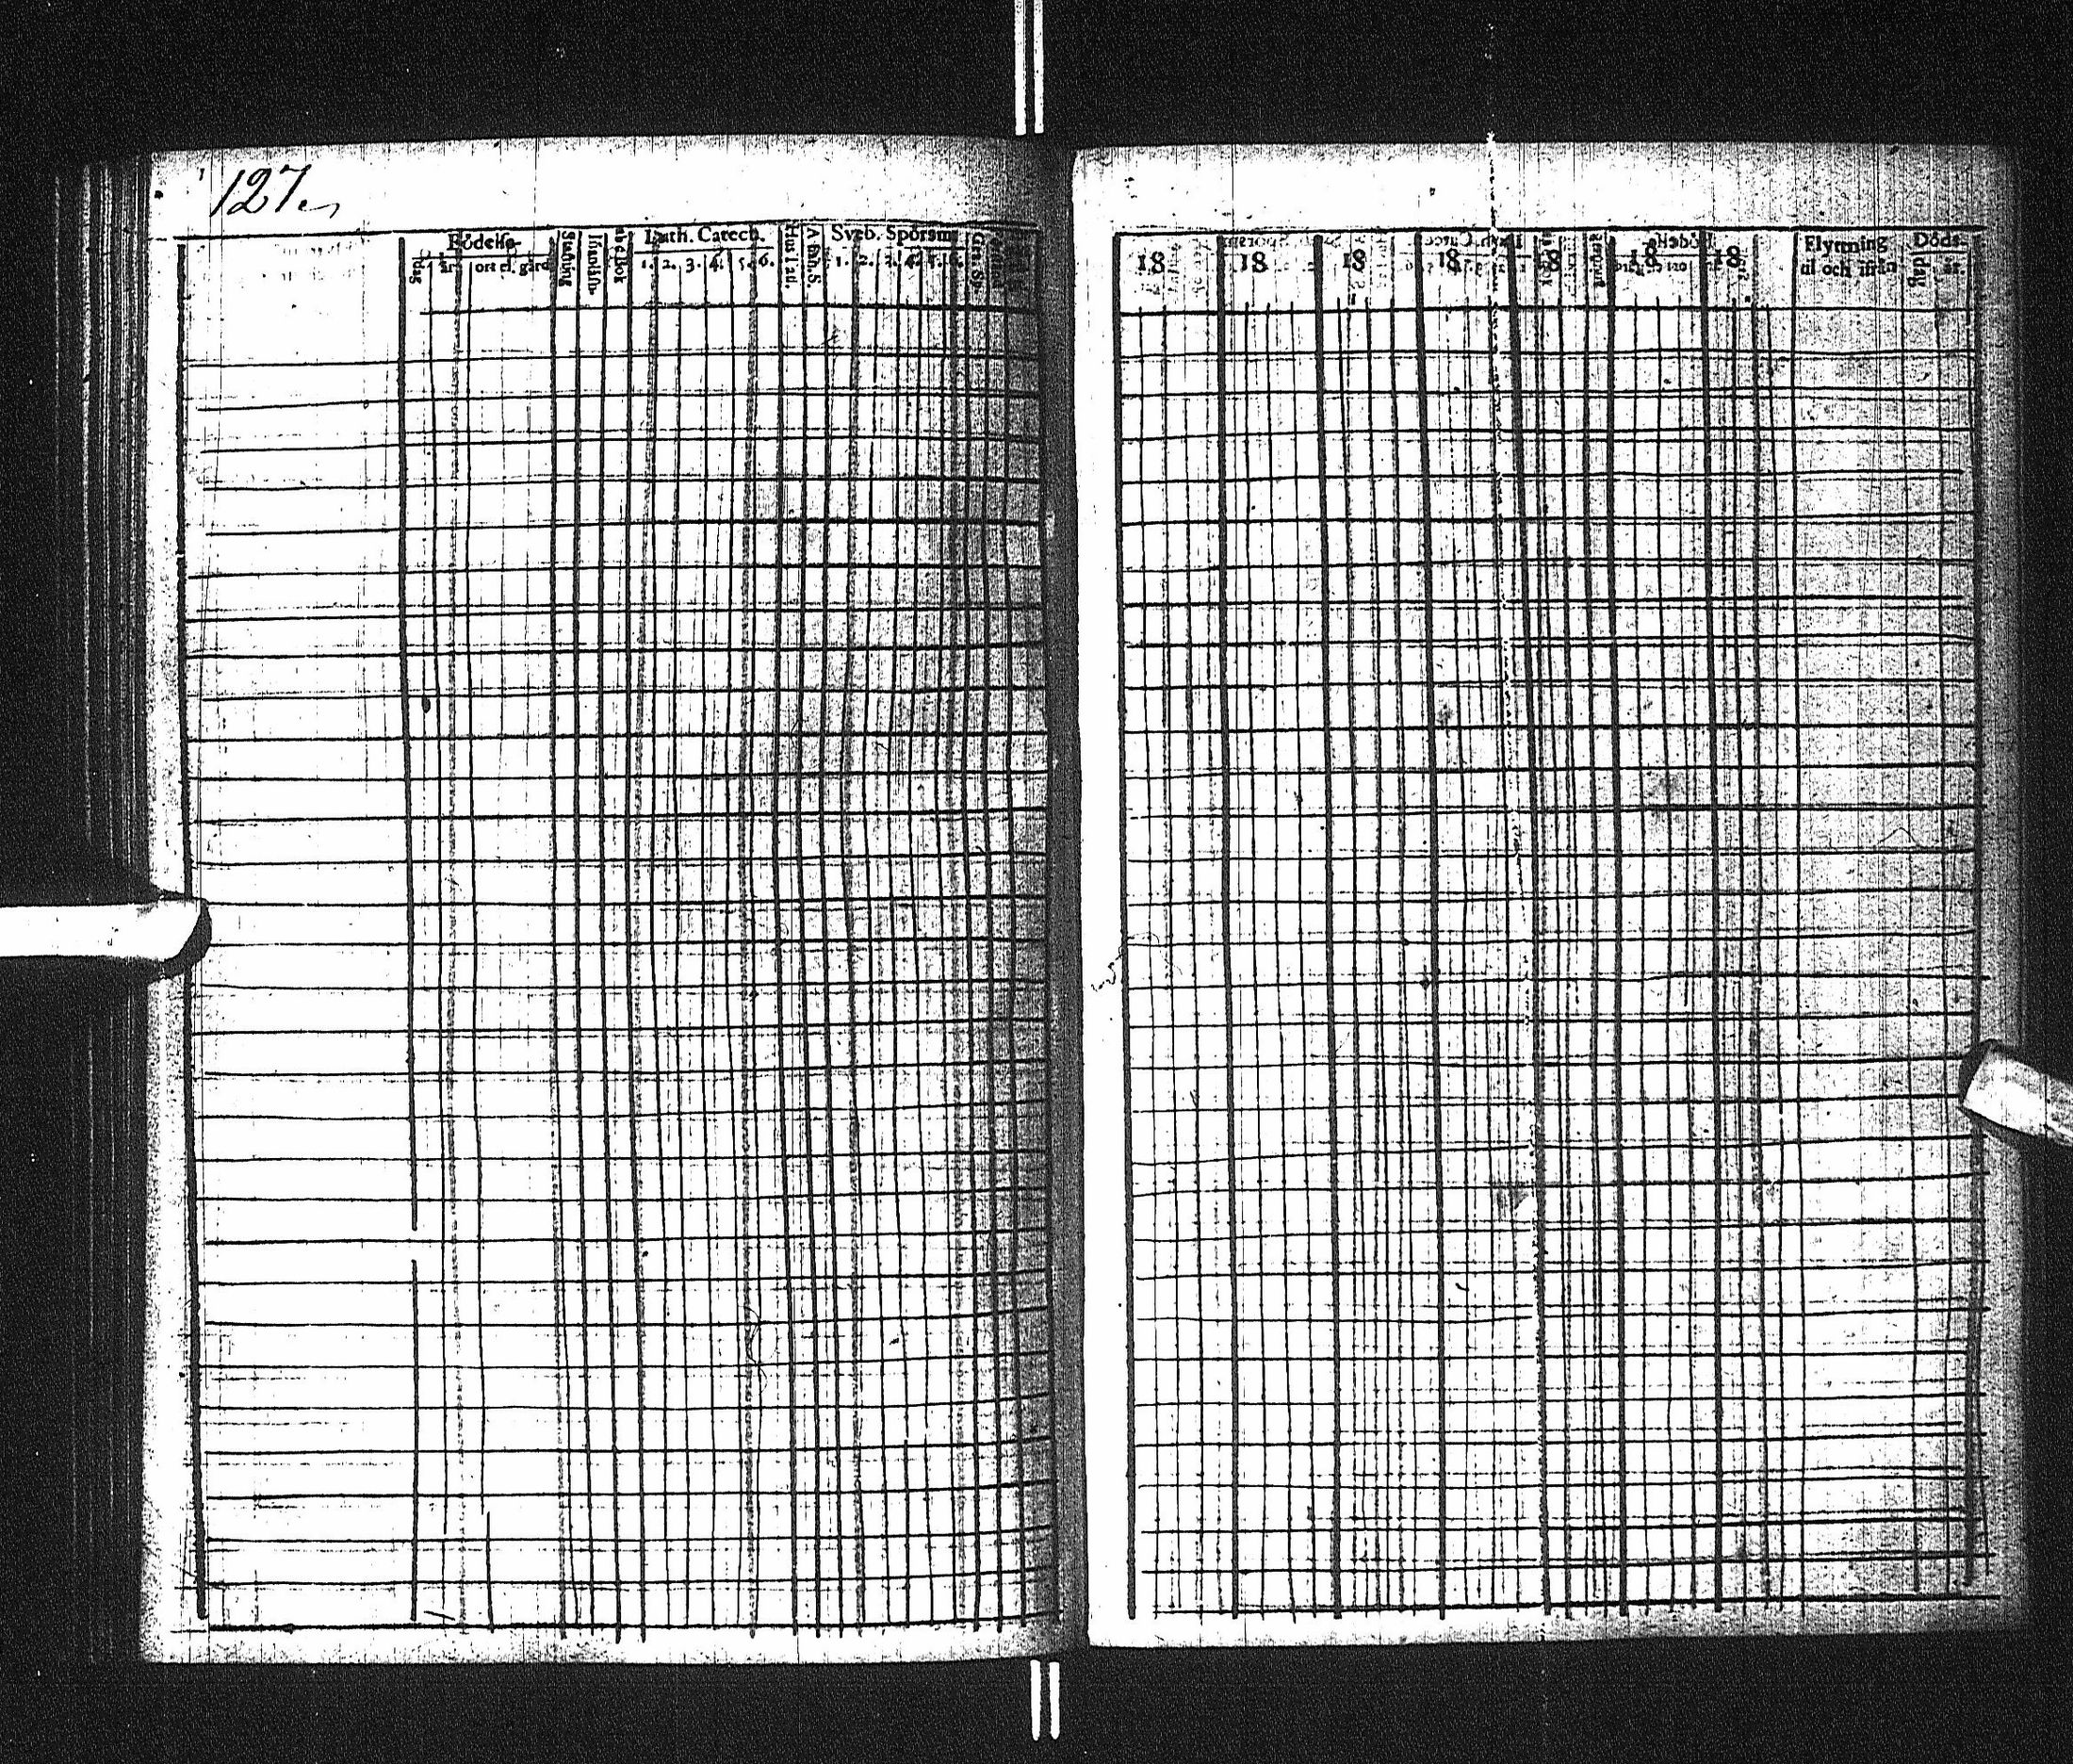 127.
Födelse- Luth. Catech. Sveb. Spörsm.
dag år ort el. gård Stafning Innanläsn. abcBok 1. 2. 3. 4. 5. 6. Hus Tafl. A Bön. S. 1. 2. 3. 4. 5. 6.
18 18 18 18 18 18 18 Flyttning Döds-
til och ifrån dag år.